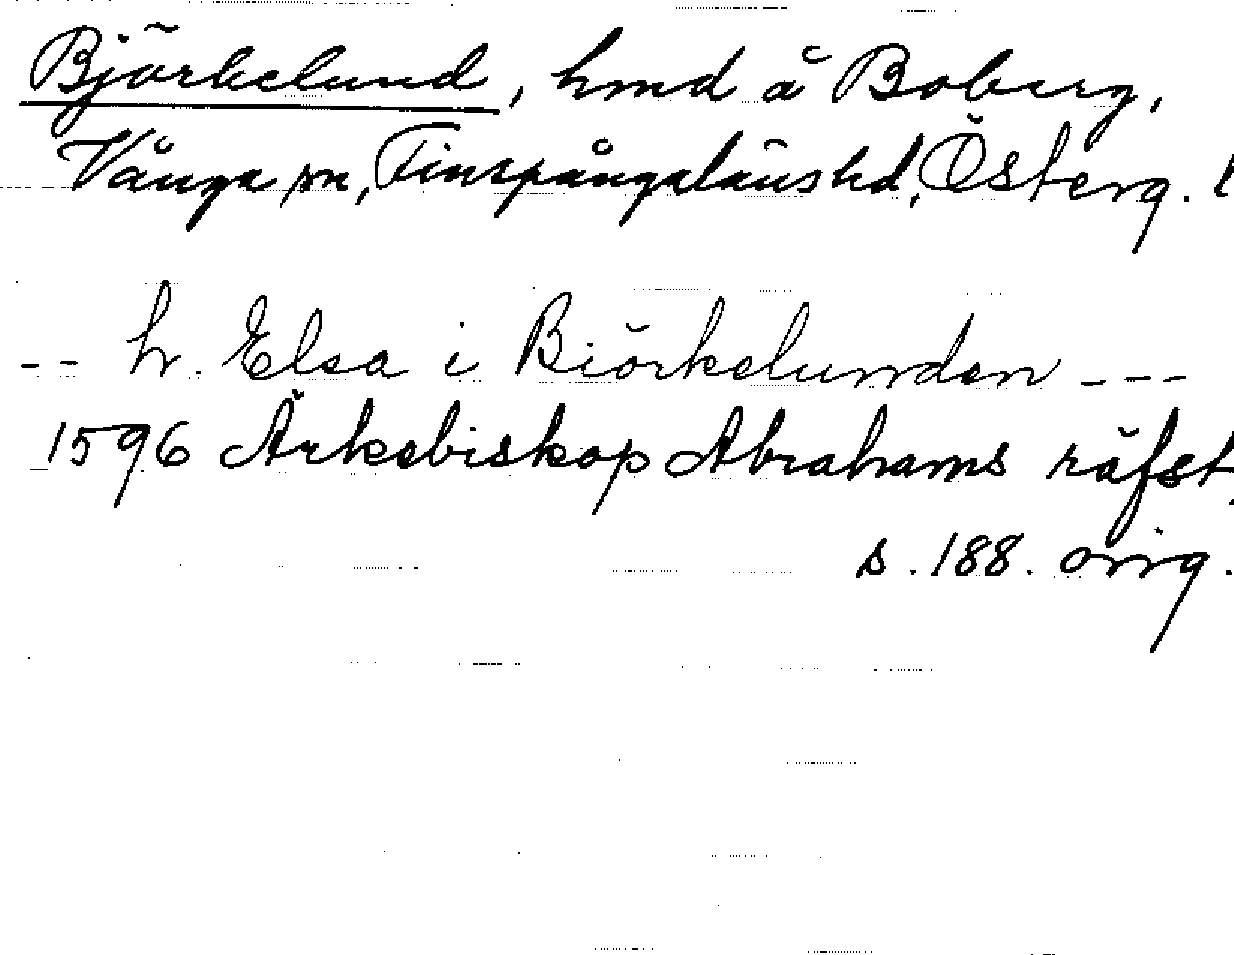 Björkelund, hmd å Boberg,
Vånga sn, Finspångalänshd, Österg. l
-- h. Elsa i Biörkelunden ---
1596 Ärkebiskop Abrahams räfst,
s. 188. orig.